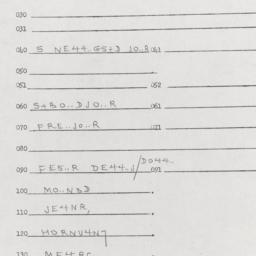 030
031
040 S NE44..GS+D JO..R 041
050
051 052
060 S+BO..DJO..R 061
070 FRE..JO..R 071
080
090 FES..R DE44../DO44.. 091
100 MO..NBD
110 JE4NR,
120 HORNU4N7
130